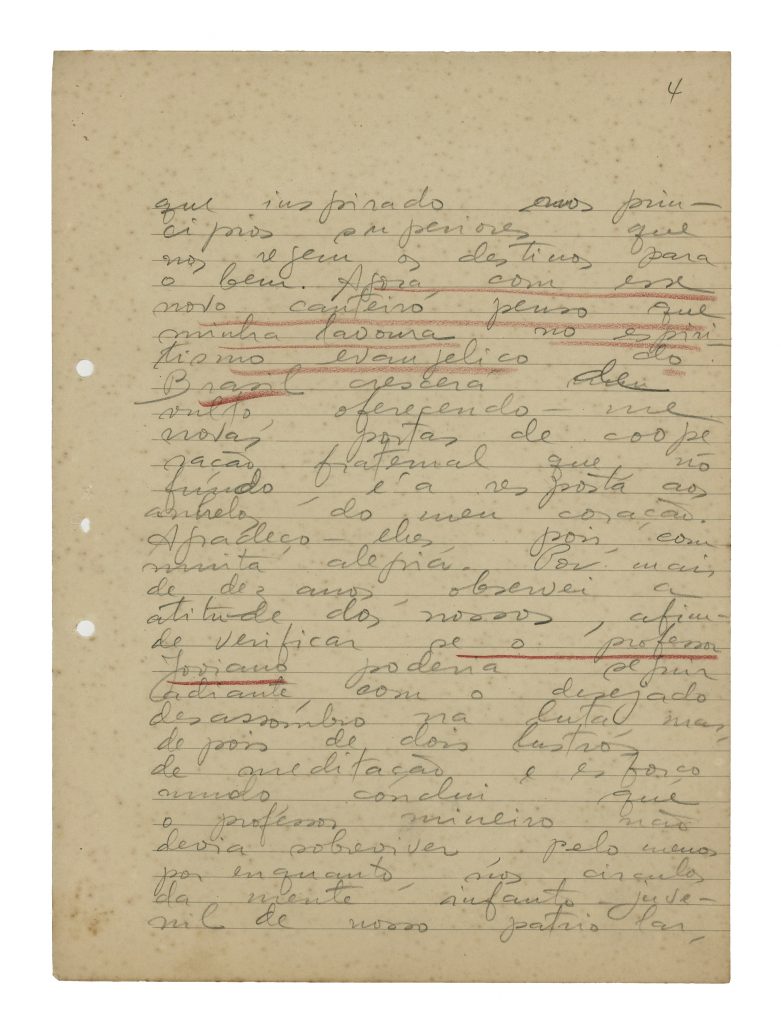 4
que inspirado nos prin-
cipios superiores que
nos regem os destinos para
o bem. Agora, com esse
novo canteiro penso que
minha lavoura no espiri-
tismo evangelico do
Brasil crescerá de
vulto, oferecendo-me
novas portas de coope
ração fraternal que, no
fundo, é a resposta aos
anhelos do meu coração.
Agradeço-lhes, pois, com
muita alegria. Por mais
de dez anos observei a
atitude dos nossos, afim-
de verificar se o professor
Joviano poderia seguir
adiante com o desejado
desassombro na luta mas,
depois de dois lustros
de meditação e esforço
mudo conclui que
o professor mineiro não
devia sobreviver pelo menos
por enquanto, nos circulos
da mente infanto-juve-
nil de nosso patrio lar,